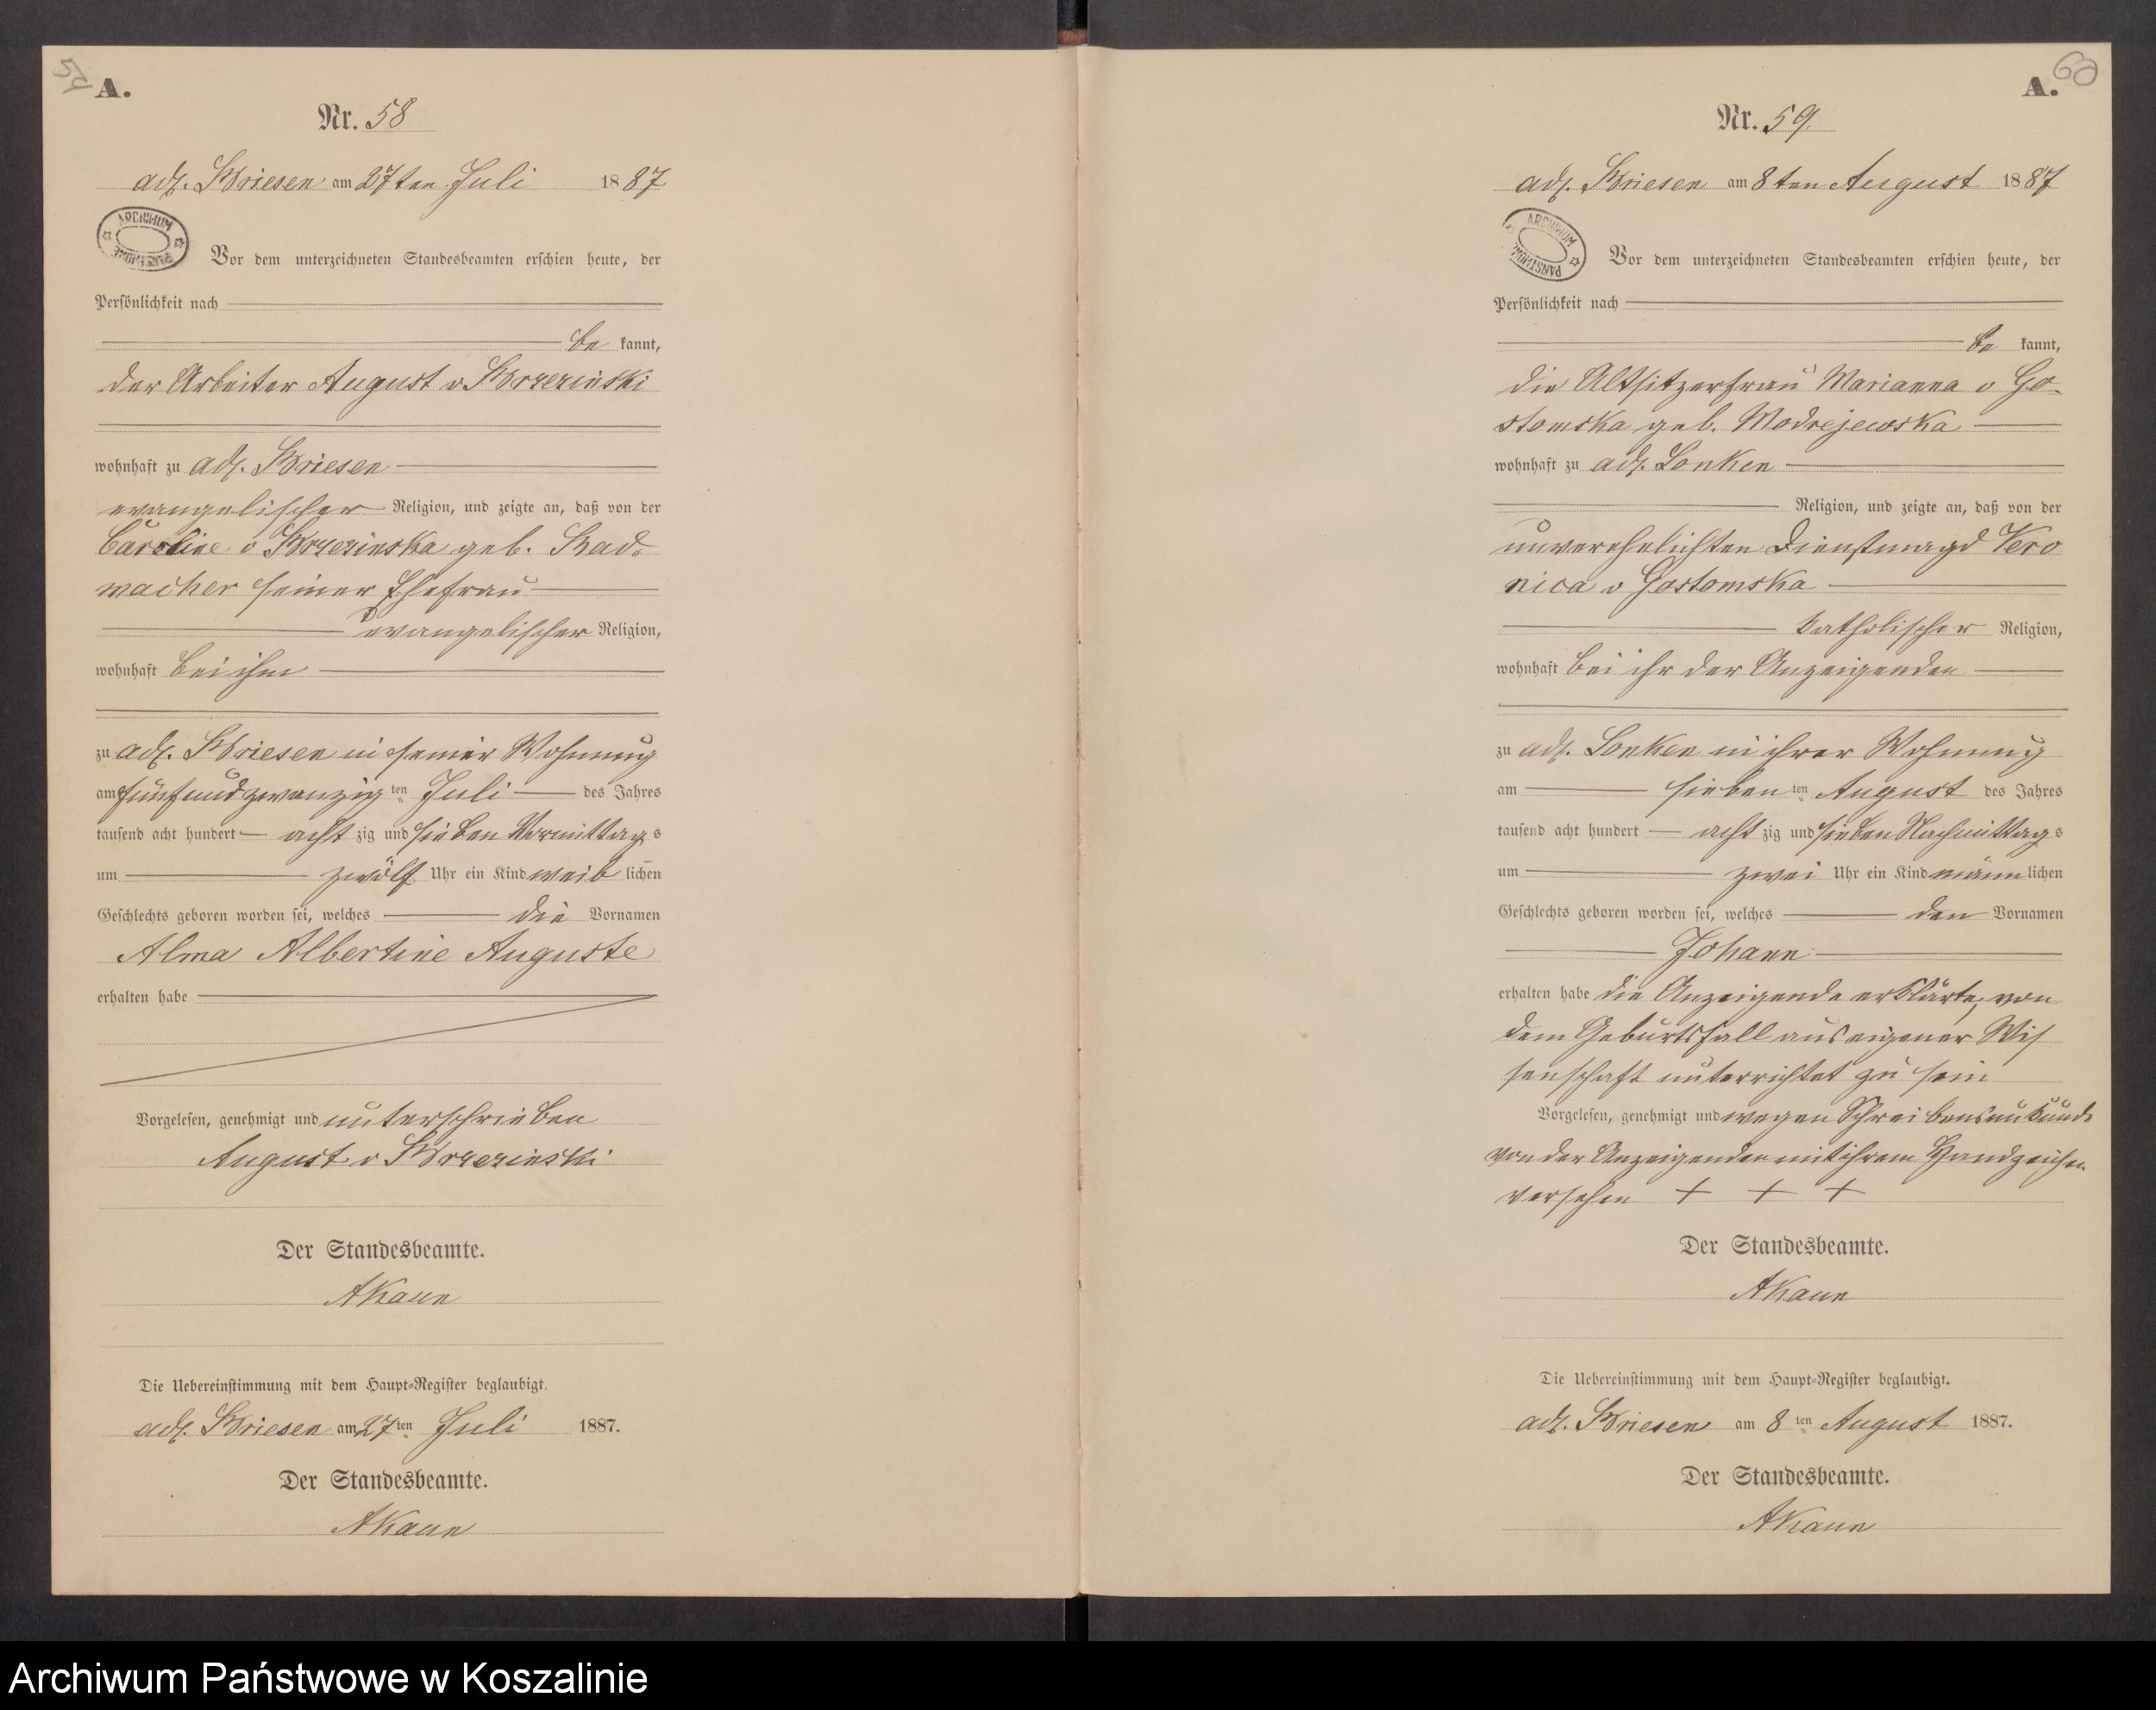 59
A.
Nr. 58
adl. Briesen am 27ten Juli 1887
ARCHIWUM PAŃSTWOWE
Vor dem unterzeichneten Standesbeamten erschien heute, der
Persönlichkeit nach
be kannt,
der Arbeiter August v Brzezinski
wohnhaft zu adl. Briesen
evangelischer Religion, und zeigte an, daß von der
Caroline v Brzezinska geb. Rad-
macher seiner Ehefrau
evangelischer Religion,
wohnhaft bei ihm
zu adl. Briesen in seiner Wohnung
am fünfundzwanzig ten Juli des Jahres
tausend acht hundert acht zig und sieben Vormittag s
um zwölf Uhr ein Kind weib lichen
Geschlechts geboren worden sei, welches die Vornamen
Alma Albertine Auguste
erhalten habe
Vorgelesen, genehmigt und unterschrieben
August v Brzezinski
Der Standesbeamte.
AKaun
Die Uebereinstimmung mit dem Haupt-Register beglaubigt.
adl. Briesen am 27 ten Juli 1887.
Der Standesbeamte.
AKaun
60
A.
Nr. 59.
adl. Briesen am 8ten August 1887
ARCHIWUM PAŃSTWOWE
Vor dem unterzeichneten Standesbeamten erschien heute, der
Persönlichkeit nach
be kannt,
die Altsitzerfrau Marianna v Go-
stomska geb. Modrejewska
wohnhaft zu adl. Lonken
Religion, und zeigte an, daß von der
unverehelichten Dienstmagd Vero
nica v Gostomska
katholischer Religion,
wohnhaft bei ihr der Anzeigenden
zu adl. Lonken in ihrer Wohnung
am sieben ten August des Jahres
tausend acht hundert acht zig und sieben Nachmittag s
um zwei Uhr ein Kind männ lichen
Geschlechts geboren worden sei, welches den Vornamen
Johann
erhalten habe die Anzeigende erklärte, von
dem Geburtsfall aus eigener Wis
senschaft unterrichtet zu sein
Vorgelesen, genehmigt und wegen Schreibensunkunde
von der Anzeigenden mit ihrem Handzeichen
versehen + + +
Der Standesbeamte.
AKaun
Die Uebereinstimmung mit dem Haupt-Register beglaubigt.
adl. Briesen am 8 ten August 1887.
Der Standesbeamte.
AKaun
Archiwum Państwowe w Koszalinie